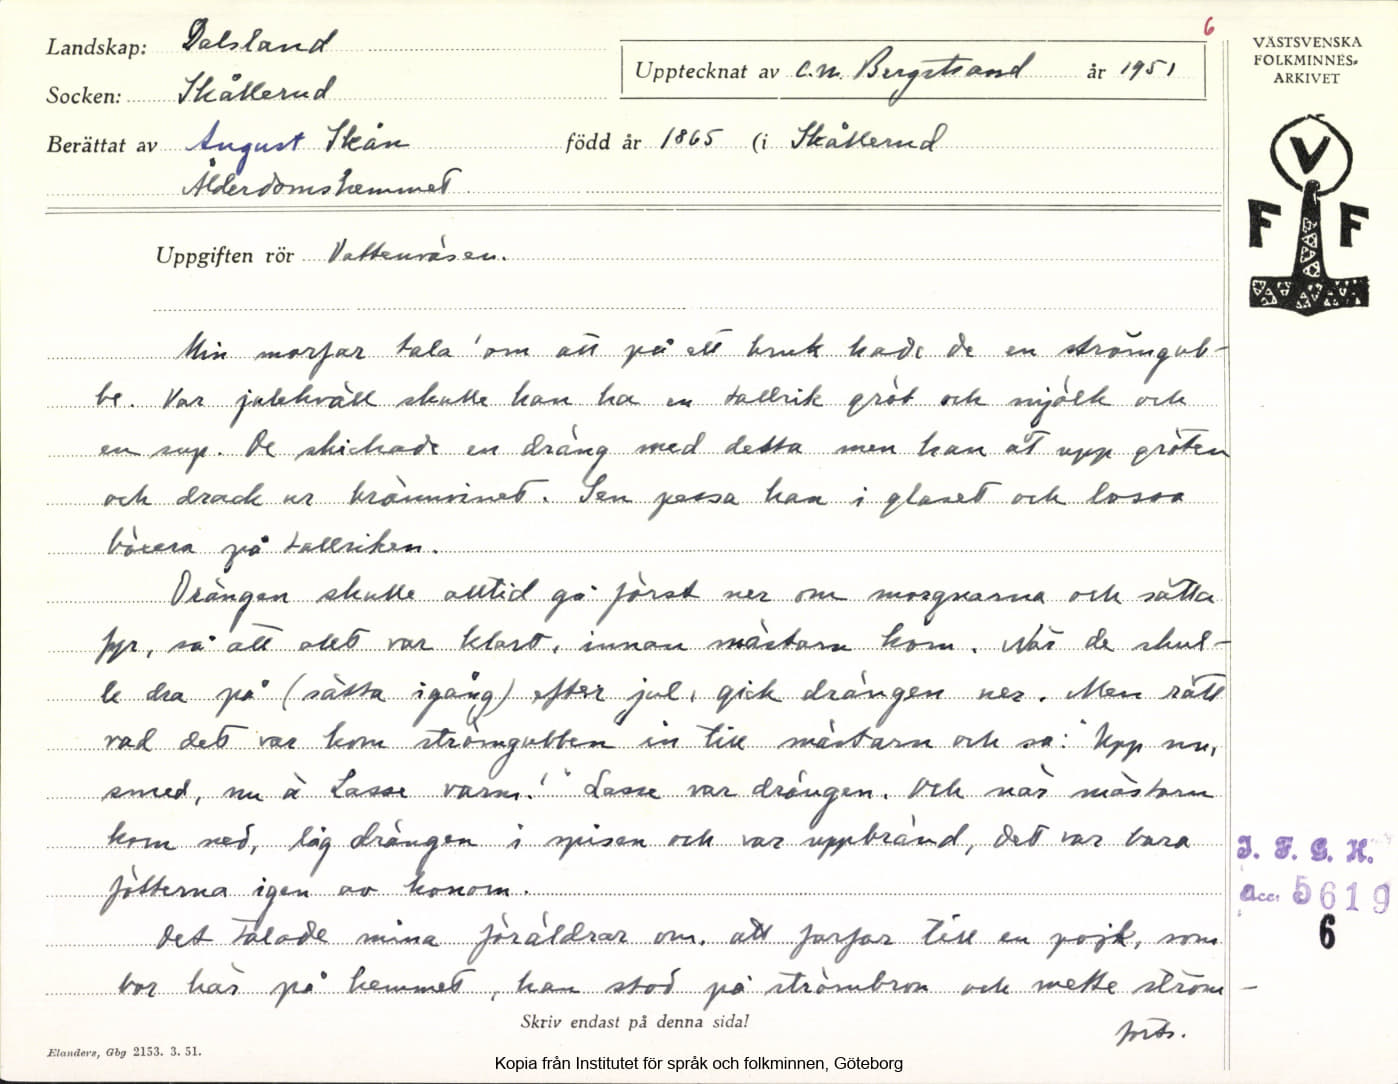 6
Landskap: Dalsland
Upptecknat av C.M. Bergstrand år 1951
VÄSTSVENSKA
FOLKMINNES-
ARKIVET
Socken: Skållerud
Berättat av August Skån född år 1865 (i Skållerud
Ålderdomshemmet
V
F F
Uppgiften rör Vattenväsen.
Min morfar tala' om att på ett bruk hade de en strömgub-
be. Var julekväll skulle han ha en tallrik gröt och mjölk och
en sup. De skickade en dräng med detta men han åt upp gröten
och drack ur brännvinet. Sen pessa han i glaset och lossa
böxera på tallriken.
Drängen skulle alltid gå först ner om morgnarna och sätta
fyr, så att allt var klart, innan mästarn kom. När de skul-
le dra på (sätta igång) efter jul, gick drängen ner. Men rätt
vad det var kom strömgubben in till mästarn och sa: "Upp nu,
smed, nu ä Lasse varm!" Lasse var drängen. Och när mästarn
kom ned, låg drängen i spisen och var uppbränd, det var bara
fötterna igen av honom.
Det talade mina föräldrar om, att farfar till en pojk, som
bor här på hemmet, han stod på strömbron och mette ström-
forts.
Skriv endast på denna sida!
J. F. G. H.
Acc: 5619
6
Elanders, Gbg 2153. 3. 51.
Kopia från Institutet för språk och folkminnen, Göteborg